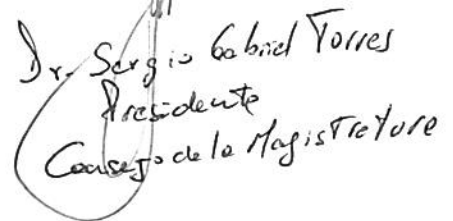 Dr. Sergio Gabriel Torres
Presidente
Consejo de la Magistratura